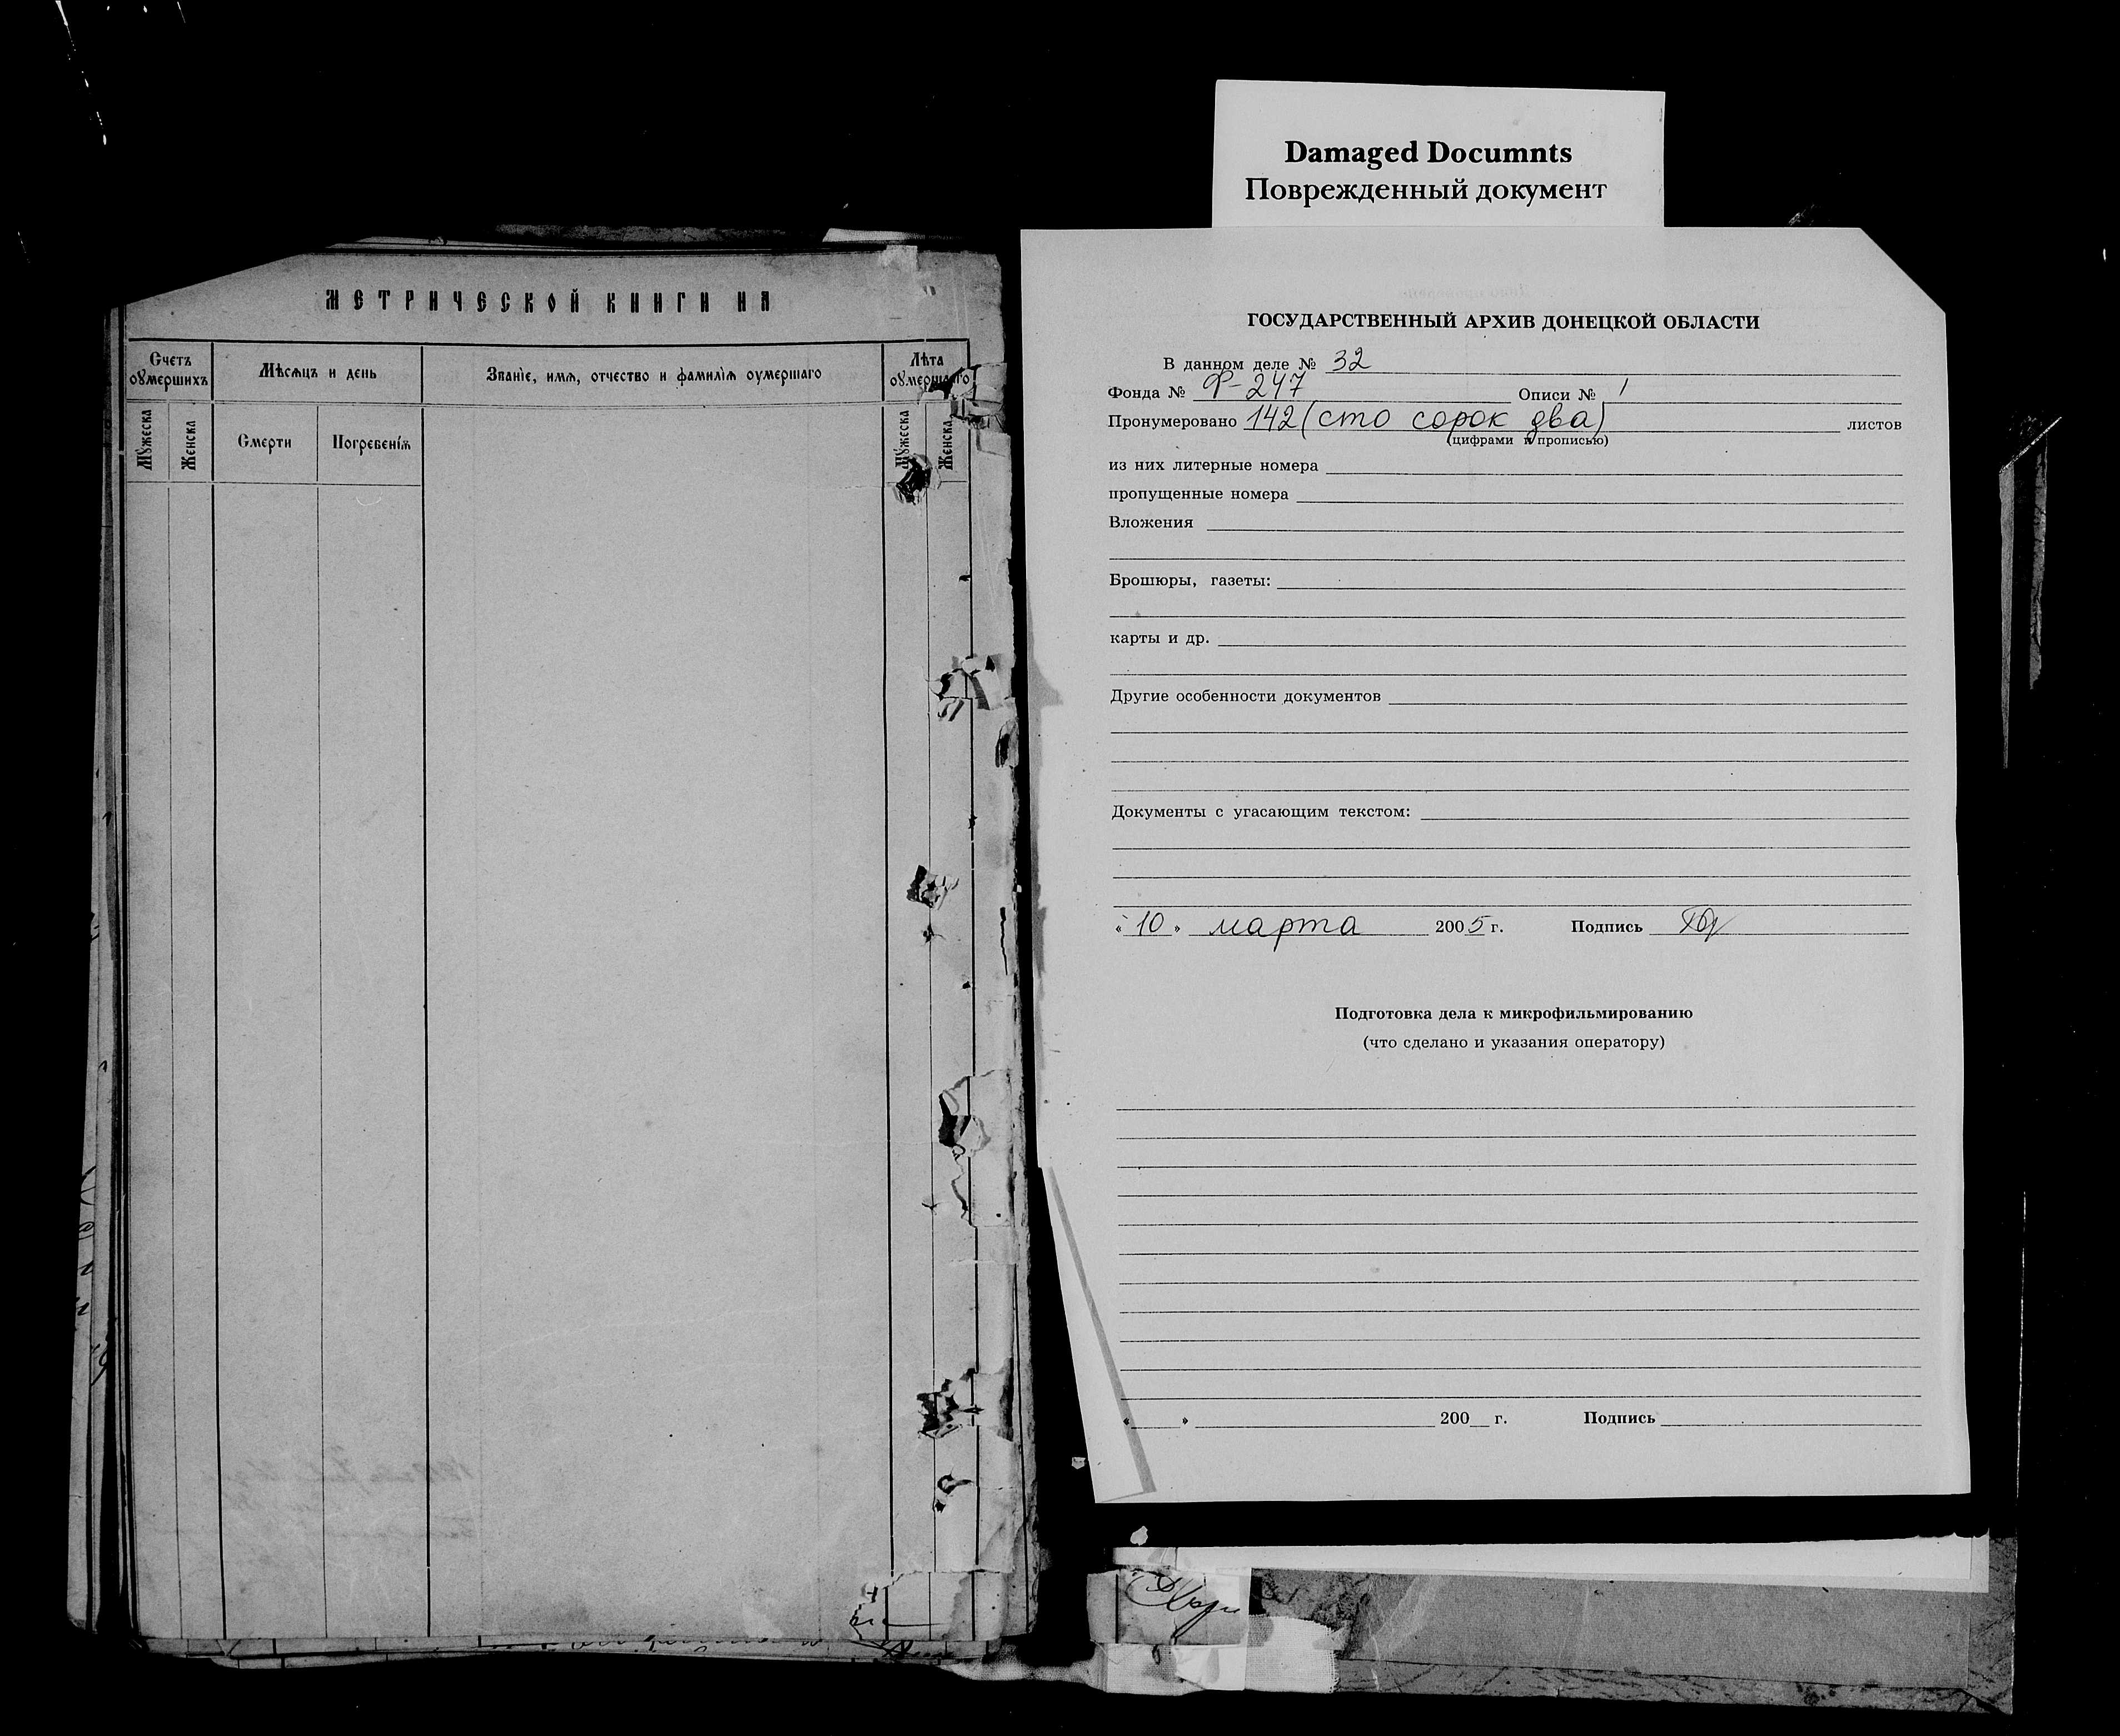 Damaged Documnts
Поврежденный документ
МЕТРИЧЕСКОЙ КНИГИ НА
Счетъ оумершихъ
Мѣсѧцъ и день
Званіе, имѧ, отчество и фамиліѧ оумершаго
Лѣта оумершаго
Мꙋжеска
Женска
Смерти
Погребеніѧ
Мꙋжеска
Женска
ГОСУДАРСТВЕННЫЙ АРХИВ ДОНЕЦКОЙ ОБЛАСТИ
В данном деле № 32
Фонда № Ф-247 Описи № 1
Пронумеровано 142 (сто сорок два) листов
(цифрами и прописью)
из них литерные номера
пропущенные номера
Вложения
Брошюры, газеты:
карты и др.
Другие особенности документов
Документы с угасающим текстом:
« 10 » марта 2005 г. Подпись
Подготовка дела к микрофильмированию
(что сделано и указания оператору)
« » 200 г. Подпись